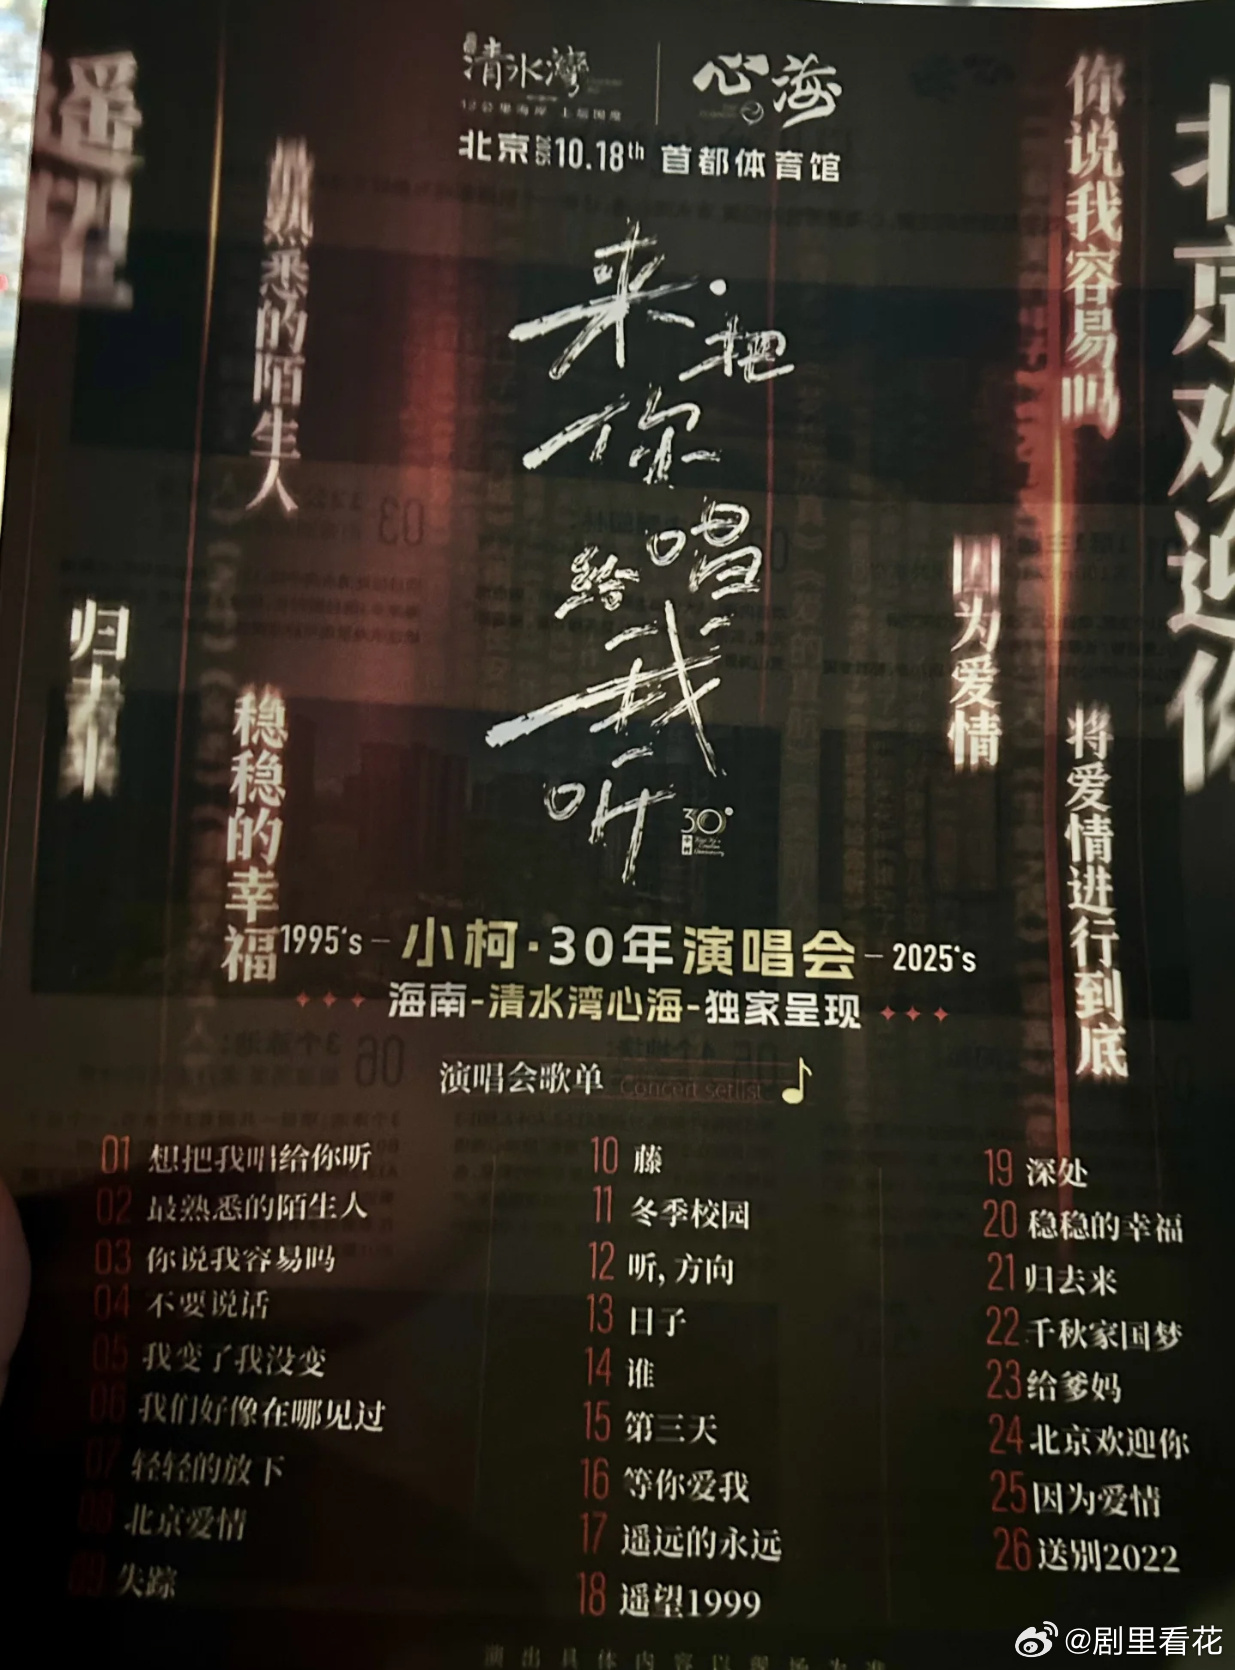 清水灣
12公里海岸 上层国度
心海
北京2025 10.18th 首都体育馆
遥望
熟悉的陌生人
归去来
稳稳的幸福
你说我容易吗
北京欢迎你
因为爱情
将爱情进行到底
来·把
你
唱
给
我
听
30°
1995's – 小柯·30年演唱会 – 2025's
海南-清水湾心海-独家呈现
演唱会歌单 Concert setlist
01 想把我唱给你听
02 最熟悉的陌生人
03 你说我容易吗
04 不要说话
05 我变了我没变
06 我们好像在哪见过
07 轻轻的放下
08 北京爱情
09 失踪
10 藤
11 冬季校园
12 听,方向
13 日子
14 谁
15 第三天
16 等你爱我
17 遥远的永远
18 遥望1999
19 深处
20 稳稳的幸福
21 归去来
22 千秋家国梦
23 给爹妈
24 北京欢迎你
25 因为爱情
26 送别2022
演出具体内容以现场为准
@剧里看花